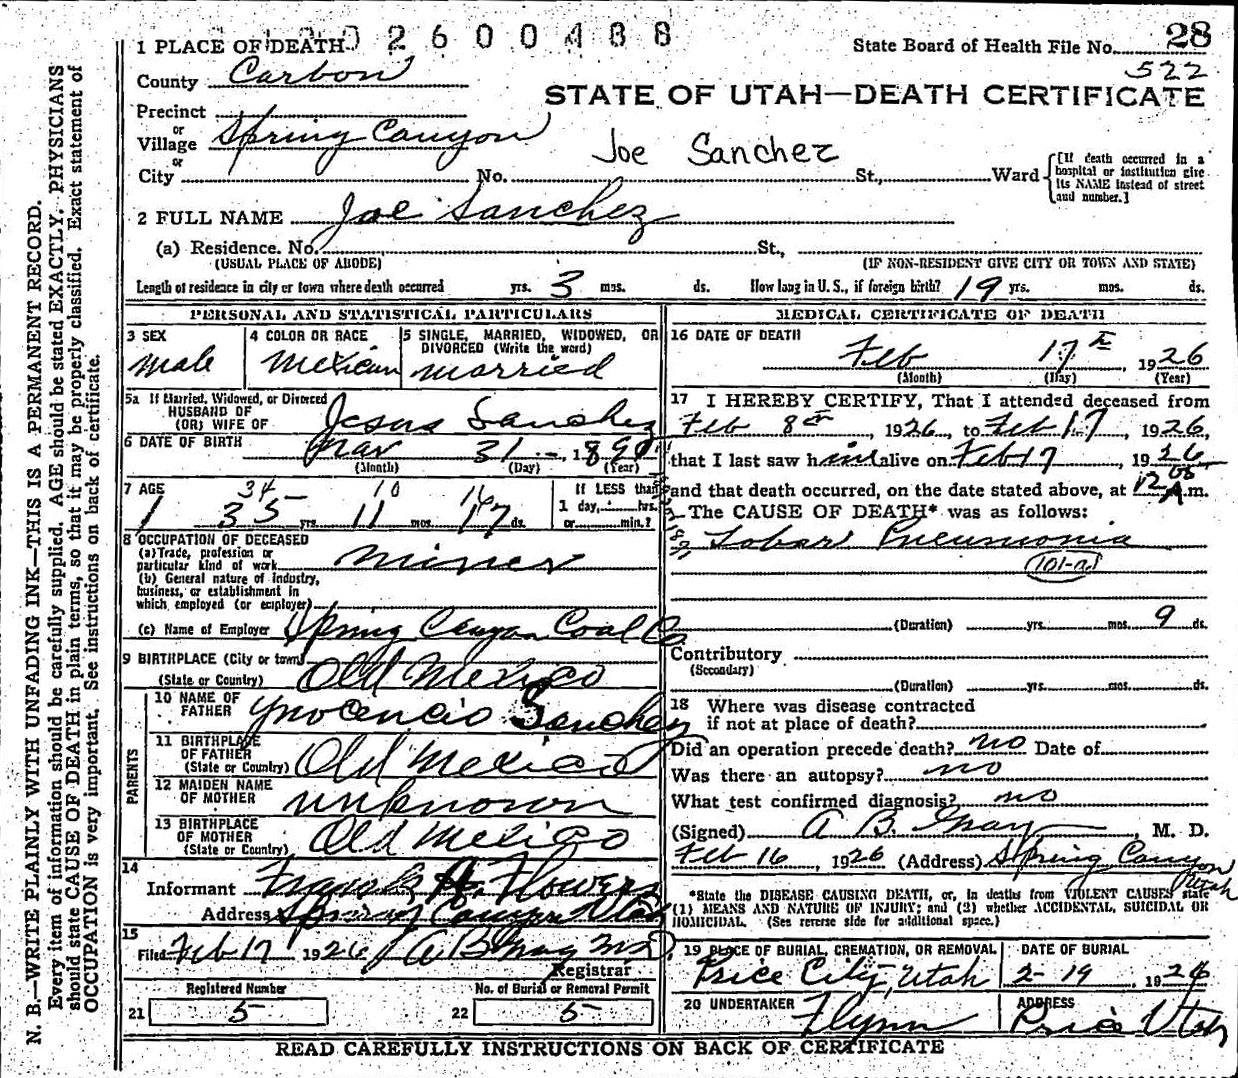 2600488
28
1 PLACE OF DEATH
State Board of Health File No.
522
County Carbon
STATE OF UTAH—DEATH CERTIFICATE
Precinct
or
Village Spring Canyon
Joe Sanchez
or
City No. St., Ward
[If death occurred in a hospital or institution give its NAME instead of street and number.]
2 FULL NAME Joe Sanchez
(a) Residence. No. St.,
(USUAL PLACE OF ABODE) (IF NON-RESIDENT GIVE CITY OR TOWN AND STATE)
Length of residence in city or town where death occurred yrs. 3 mos. ds. How long in U. S., if foreign birth? 19 yrs. mos. ds.
PERSONAL AND STATISTICAL PARTICULARS
3 SEX
Male
4 COLOR OR RACE
Mexican
5 SINGLE, MARRIED, WIDOWED, OR DIVORCED (Write the word)
married
5a If Married, Widowed, or Divorced
HUSBAND OF
(OR) WIFE OF Jesus Sanchez
6 DATE OF BIRTH Mar 31 1890
(Month) (Day) (Year)
7 AGE
34 10 16
35 yrs. 11 mos. 17 ds.
If LESS than
1 day, hrs.
or min.?
8 OCCUPATION OF DECEASED
(a) Trade, profession or
particular kind of work miner
(b) General nature of industry,
business, or establishment in
which employed (or employer)
(c) Name of Employer Spring Canyon Coal Co
9 BIRTHPLACE (City or town)
(State or Country) Old Mexico
PARENTS
10 NAME OF
FATHER Ynocencio Sanchez
11 BIRTHPLACE
OF FATHER
(State or Country) Old Mexico
12 MAIDEN NAME
OF MOTHER unknown
13 BIRTHPLACE
OF MOTHER
(State or Country) Old Mexico
14
Informant Frank A. Flowers
Address Spring Canyon Utah
15
Filed Feb 17 1926 A B Gray MD.
Registrar
Registered Number
21 5
No. of Burial or Removal Permit
22 5
MEDICAL CERTIFICATE OF DEATH
16 DATE OF DEATH
Feb 17th, 1926
(Month) (Day) (Year)
17 I HEREBY CERTIFY, That I attended deceased from
Feb 8th, 1926, to Feb 17, 1926,
that I last saw him alive on Feb 17, 1926
and that death occurred, on the date stated above, at 12 05 A.m.
The CAUSE OF DEATH* was as follows:
Lobar Pneumonia
101-a
(Duration) yrs. mos. 9 ds.
Contributory
(Secondary)
(Duration) yrs. mos. ds.
18 Where was disease contracted
if not at place of death?
Did an operation precede death? no Date of
Was there an autopsy? no
What test confirmed diagnosis? no
(Signed) A B. Gray, M. D.
Feb 16, 1926 (Address) Spring Canyon
Utah
*State the DISEASE CAUSING DEATH, or, in deaths from VIOLENT CAUSES state
(1) MEANS AND NATURE OF INJURY; and (2) whether ACCIDENTAL, SUICIDAL OR
HOMICIDAL. (See reverse side for additional space.)
19 PLACE OF BURIAL, CREMATION, OR REMOVAL
Price City, Utah
DATE OF BURIAL
2-19, 1926
20 UNDERTAKER
Flynn
ADDRESS
Price Utah
READ CAREFULLY INSTRUCTIONS ON BACK OF CERTIFICATE
N. B.—WRITE PLAINLY WITH UNFADING INK—THIS IS A PERMANENT RECORD.
Every item of information should be carefully supplied. AGE should be stated EXACTLY. PHYSICIANS
should state CAUSE OF DEATH in plain terms, so that it may be properly classified. Exact statement of
OCCUPATION is very important. See instructions on back of certificate.